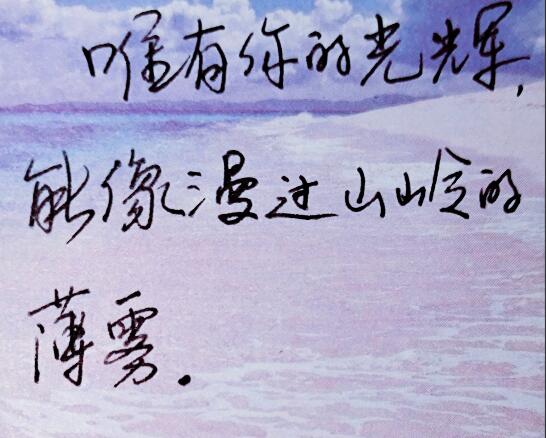 唯有你的光辉,
能像漫过山岭的
薄雾.